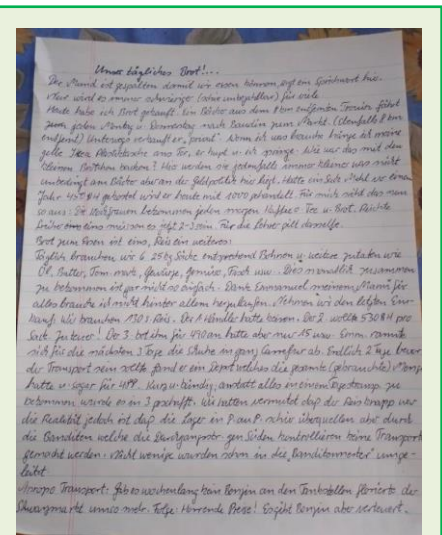 Unser tägliches Brot!...
Der Mund ist gespalten damit wir essen können, sagt ein Sprichwort hier.
Nur wird es immer schwieriger (sogar unbezahlbar) für viele
Heute habe ich Brot gekauft. Ein Bäcker aus dem 8 km entfernten Trouin fährt
jeden Montag u. Donnerstag nach Baudin zum Markt. (ebenfalls 8 km
entfernt) Unterwegs verkauft er, Wenn ich was brauche hänge ich meine
gelbe Ikea Plastiktasche ans Tor, er hupt u. ich springe. Wie war das mit den
kleinen Brötchen backen? Hier werden sie jedenfalls immer kleiner was nicht
unbedingt am Bäcker aber an der Geldpolitik hier liegt. Hatte ein Sack Mehl vor einem
Jahr gekostet wird er heute mit gehandelt. Für mich sieht das nun
so aus: Die Waisen bekommen jeden morgen Kaffee o. Tee u. Brot. Reichte
früher eins müssen es jetzt 2-3 sein. Für die Lehrer gilt dasselbe.
Brot zum Essen ist eins, Reis ein weiteres:
Täglich brauchen wir 6 25 kg Säcke entsprechend Bohnen u. weitere Zutaten wie
Öl, Butter, Tom. mark, Gewürze, Gemüse, Fisch usw. Dies monatlich zusammen
zu bekommen ist gar nicht so einfach. Dank Emmanuel meinem Mann für
alles brauche ich nicht hinter allem herzulaufen. Nehmen wir den letzten Ein-
kauf. Wir brauchten 130 S. Reis. Der 1. Händler hatte keinen. Der 2. wollte 530 pro
Sack. Zu teuer! Der 3. bot ihn für 490 an hatte aber nur 15 usw. Emm. rannte
sich für die nächsten 3 Tage die Schuhe in ganz ab. Endlich 2 Tage bevor
der Transport sein sollte fand er ein Depot welches die gesamte (gebrauchte) Menge
hatte u. sogar für Kurz u. bündig, anstatt alles an einem Tag zu
bekommen wurde es in 3 geschafft. Wir hatten vermutet daß der Reis knapp war
die Realität jedoch ist daß die Lager in P.au P. schier überquellen aber durch
die Banditen welche die gen Süden kontrollieren keine Transport
gemacht werden. Nicht wenige wurden schon in die "Banditennester" umge-
leitet.
Apropo Transport: Gab es wochenlang kein Benzin an den Tankstellen florierte der
Schwarzmarkt umso mehr. Folge: Horrende Preise! Es gibt Benzin aber verteuert.